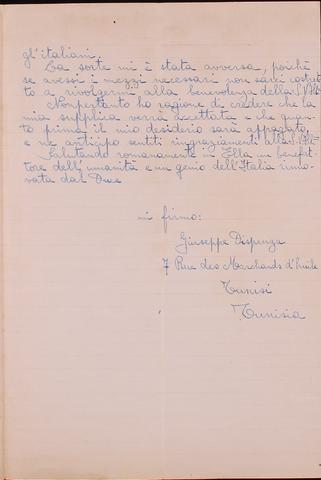 gl'italiani.
La sorte mi è stata avversa, poichè
se avessi i mezzi necessari non sarei costret
to a rivolgermi alla benevolenza della S.V.Ill.
Nonpertanto ho ragione di credere che la
mia supplica verrà accettata e che quan-
to prima il mio desiderio sarà appagato,
e ne anticipo sentiti ringraziamenti alla
Salutando romanamente in Ella un benefat-
tore dell'umanità e un genio dell'Italia rinno-
vata dal Duce
mi firmo:
Giuseppe Dispenza
7 Rue des Marchands d'huile
Tunisi
Tunisia